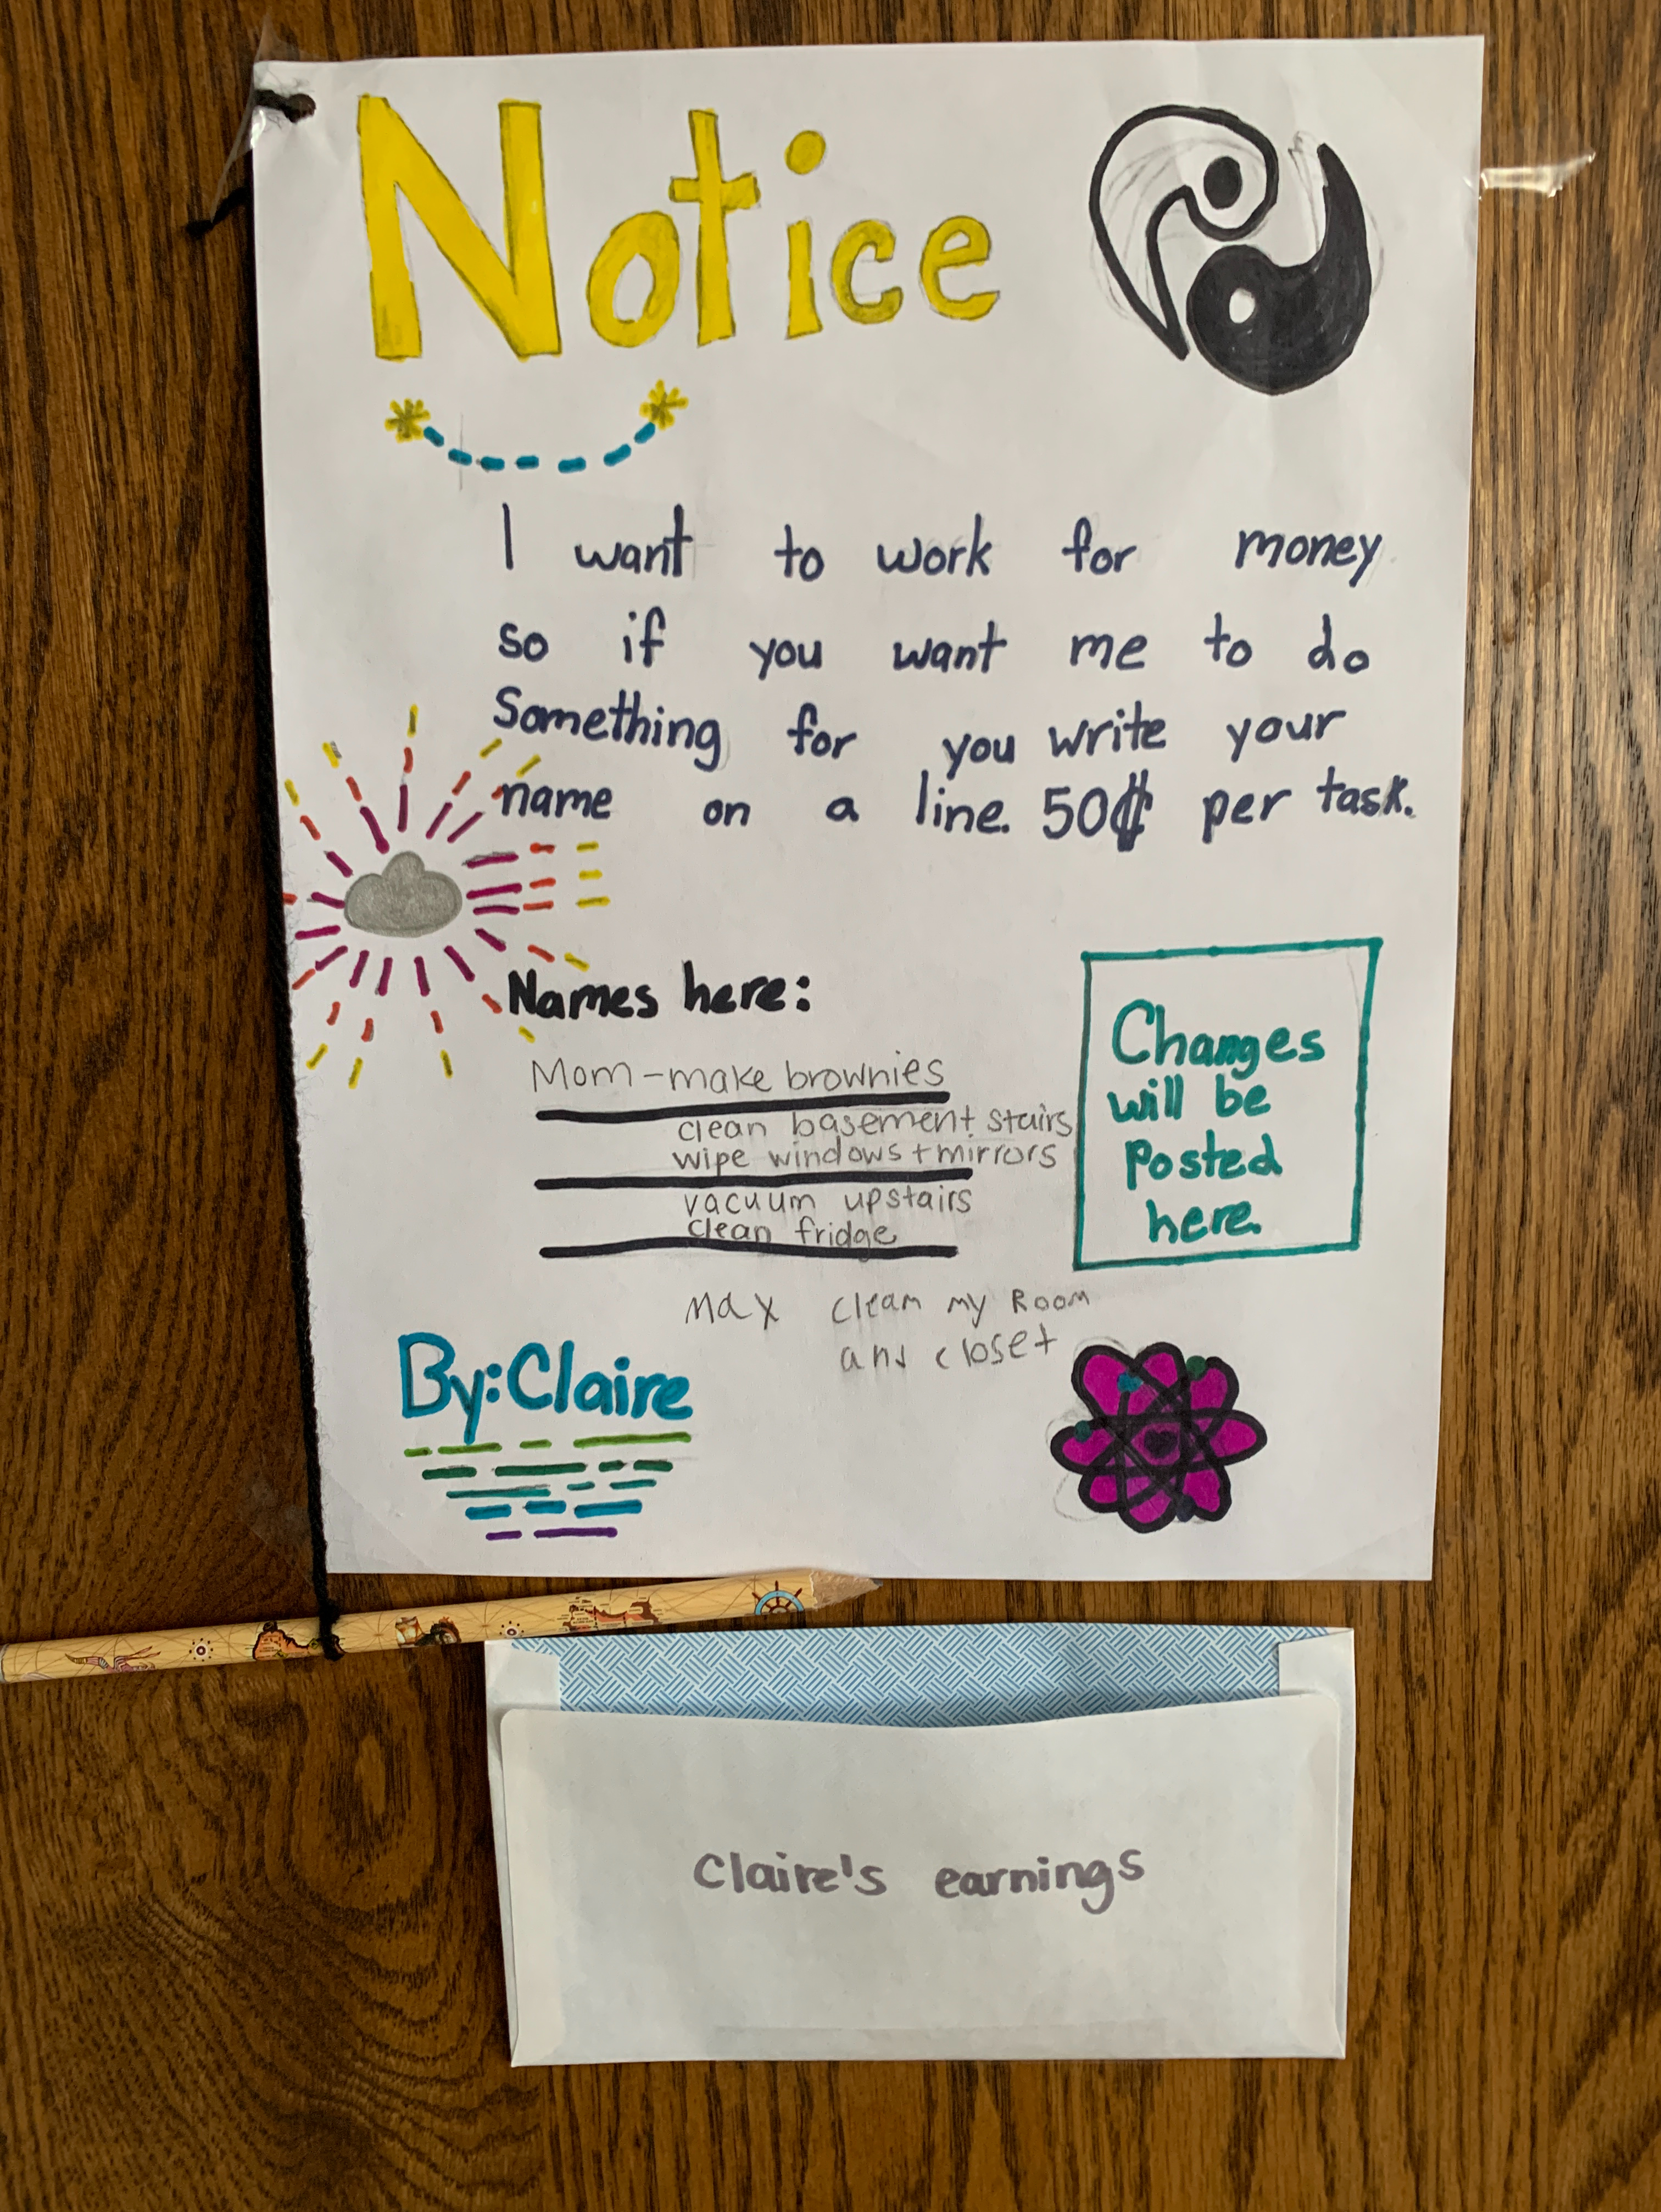 Notice
I want to work for money
so if you want me to do
Something for you write your
name on a line. 50¢ per task.
Names here:
Mom-make brownies
clean basement stairs
wipe windows + mirrors
vacuum upstairs
clean fridge
Max clean my Room
and closet
Changes
will be
posted
here.
By: Claire
Claire's earnings